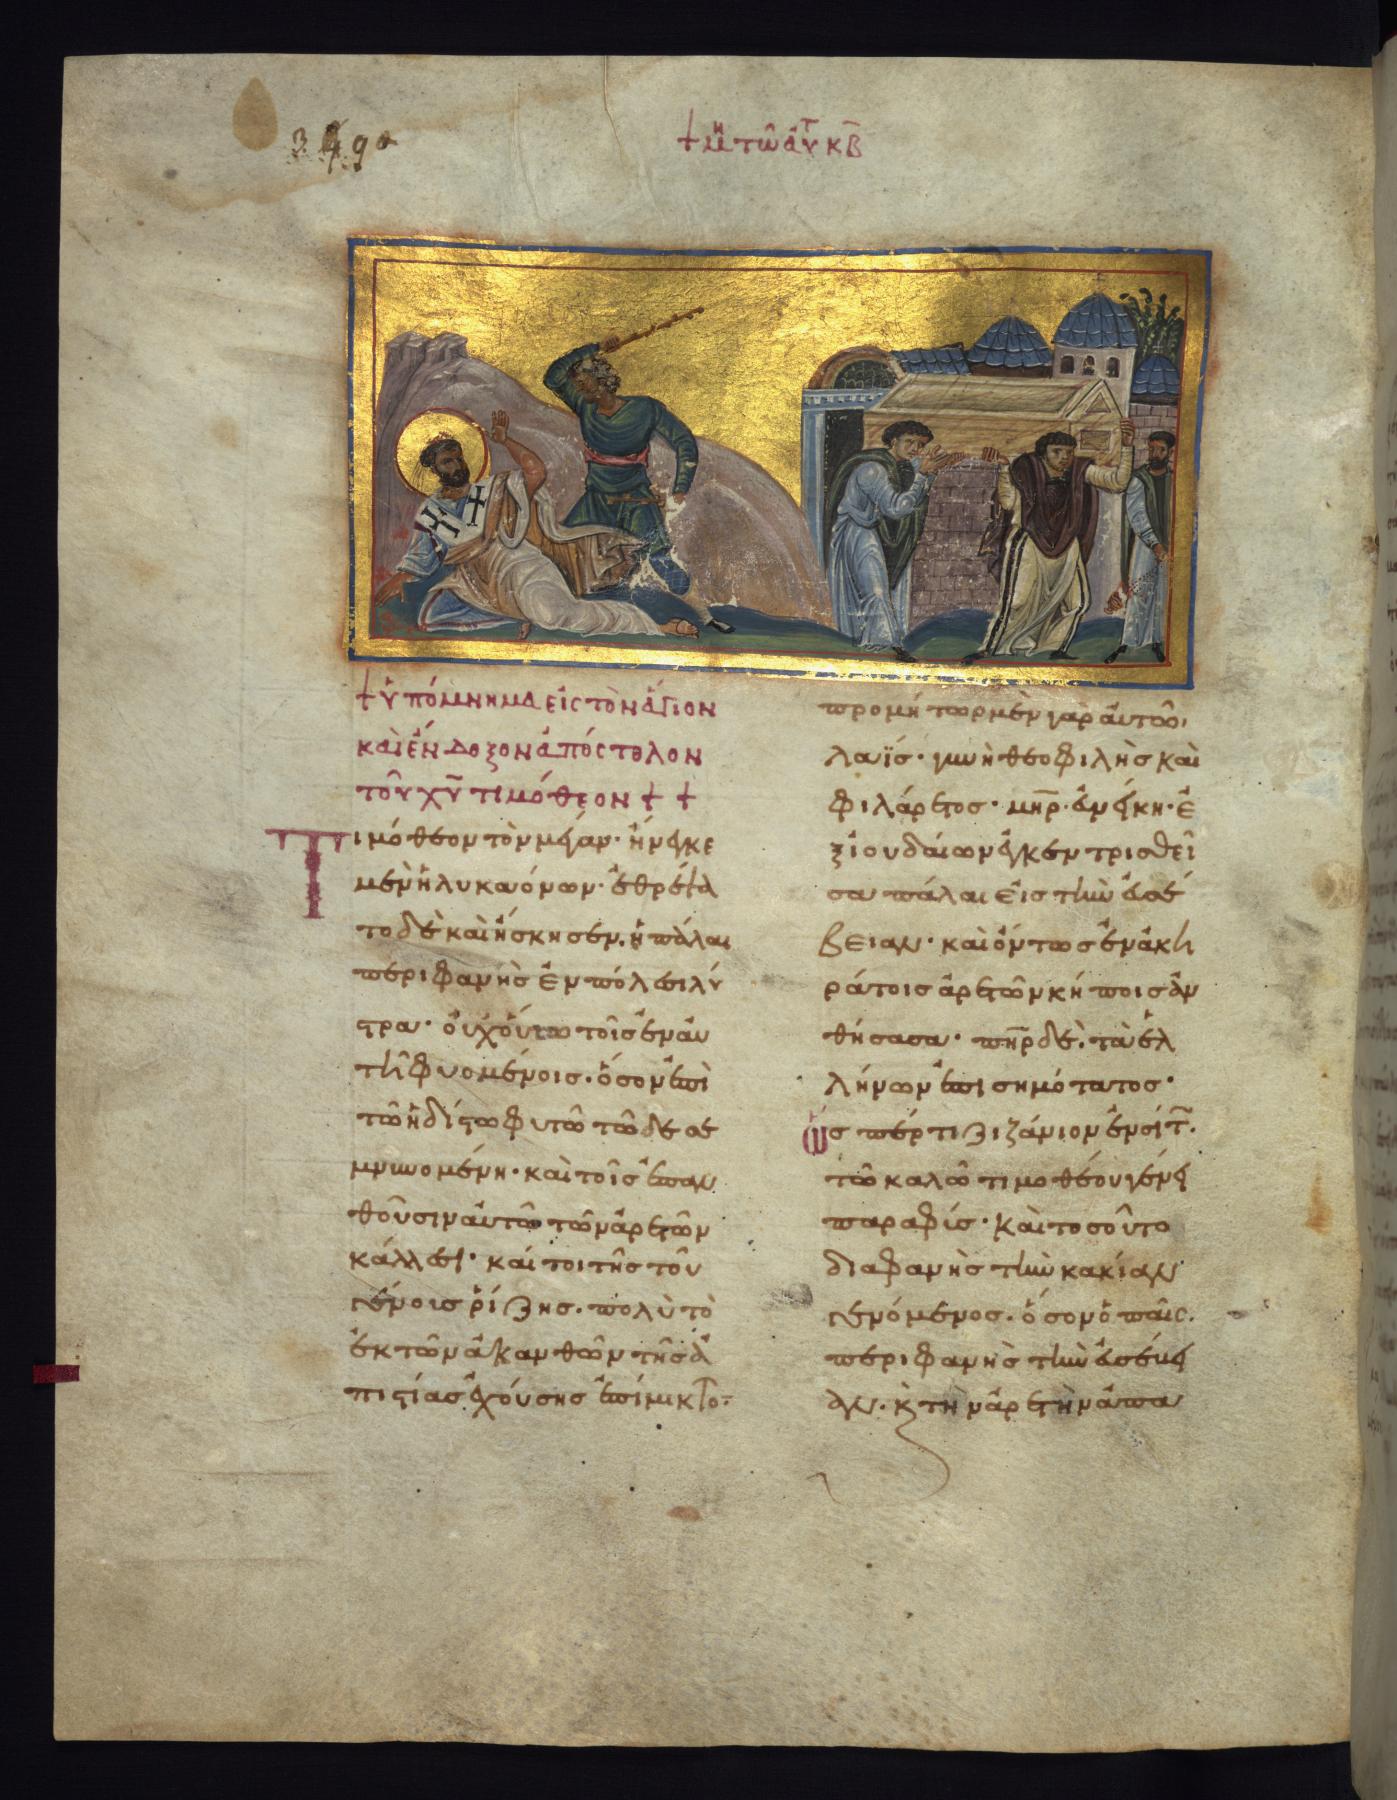 + μη τῶ αὐτ κβ
+ ὑπόμνημα εἰς τὸν ἅγιον
καὶ ἔνδοξον ἀπόστολον
τοῦ χῦ τιμόθεον + +
Τιμόθεον τὸν μέγαν· ἤνεγκε
μὲν ἡ λυκαόνων· ἐθρέψα
το δὲ καὶ ἤσκησεν, ἡ πάλαι
περιφανὴς ἐν πόλεσι λύ
στρα· οὐχ οὕτω τοῖς ἐν αὐ
τῇ φυομένοις· ὅσον ἐπὶ
τῶ ἡδίστω φυτῶ τῶδε σε
μνυομένη· καὶ τοῖς ἐπαν
θοῦσιν αὐτῶ τῶν ἀρετῶν
κάλλεσι· καί τοι τῆς τοῦ
γένους ῥίζης· πολὺ τὸ
ἐκ τῶν ἀκανθῶν τῆς ἀ
πιστίας ἐχούσης ἐπίμικτο·
προμήτωρ μὲν γὰρ αὐτῶ,
λωΐς· γυνὴ θεοφιλὴς καὶ
φιλάρετος· μηρ· εὐνείκη· ἐ
ξ ἰουδαίων ἐγκεντρισθεῖ
σα πάλαι εἰς τὴν εὐσέ
βειαν· καὶ ὄντως ἐν ἀκη
ράτοις ἀρετῶν κήποις ἀν
θήσασα· πηρ δὲ, τὰ ἑλ
λήνων ἐπισημότατος·
ὥσπερ τι ζιζάνιον ἐν σίτ.
τῶ καλῶ τιμοθέου γένει
παραφύς· καὶ τοσοῦτο
διαφανὴς τὴν κακίαν
γενόμενος· ὅσον ὁ παῖς.
περιφανὴς τὴν εὐσέβει
αν· κ τὴν ἀρετὴν ἅπα